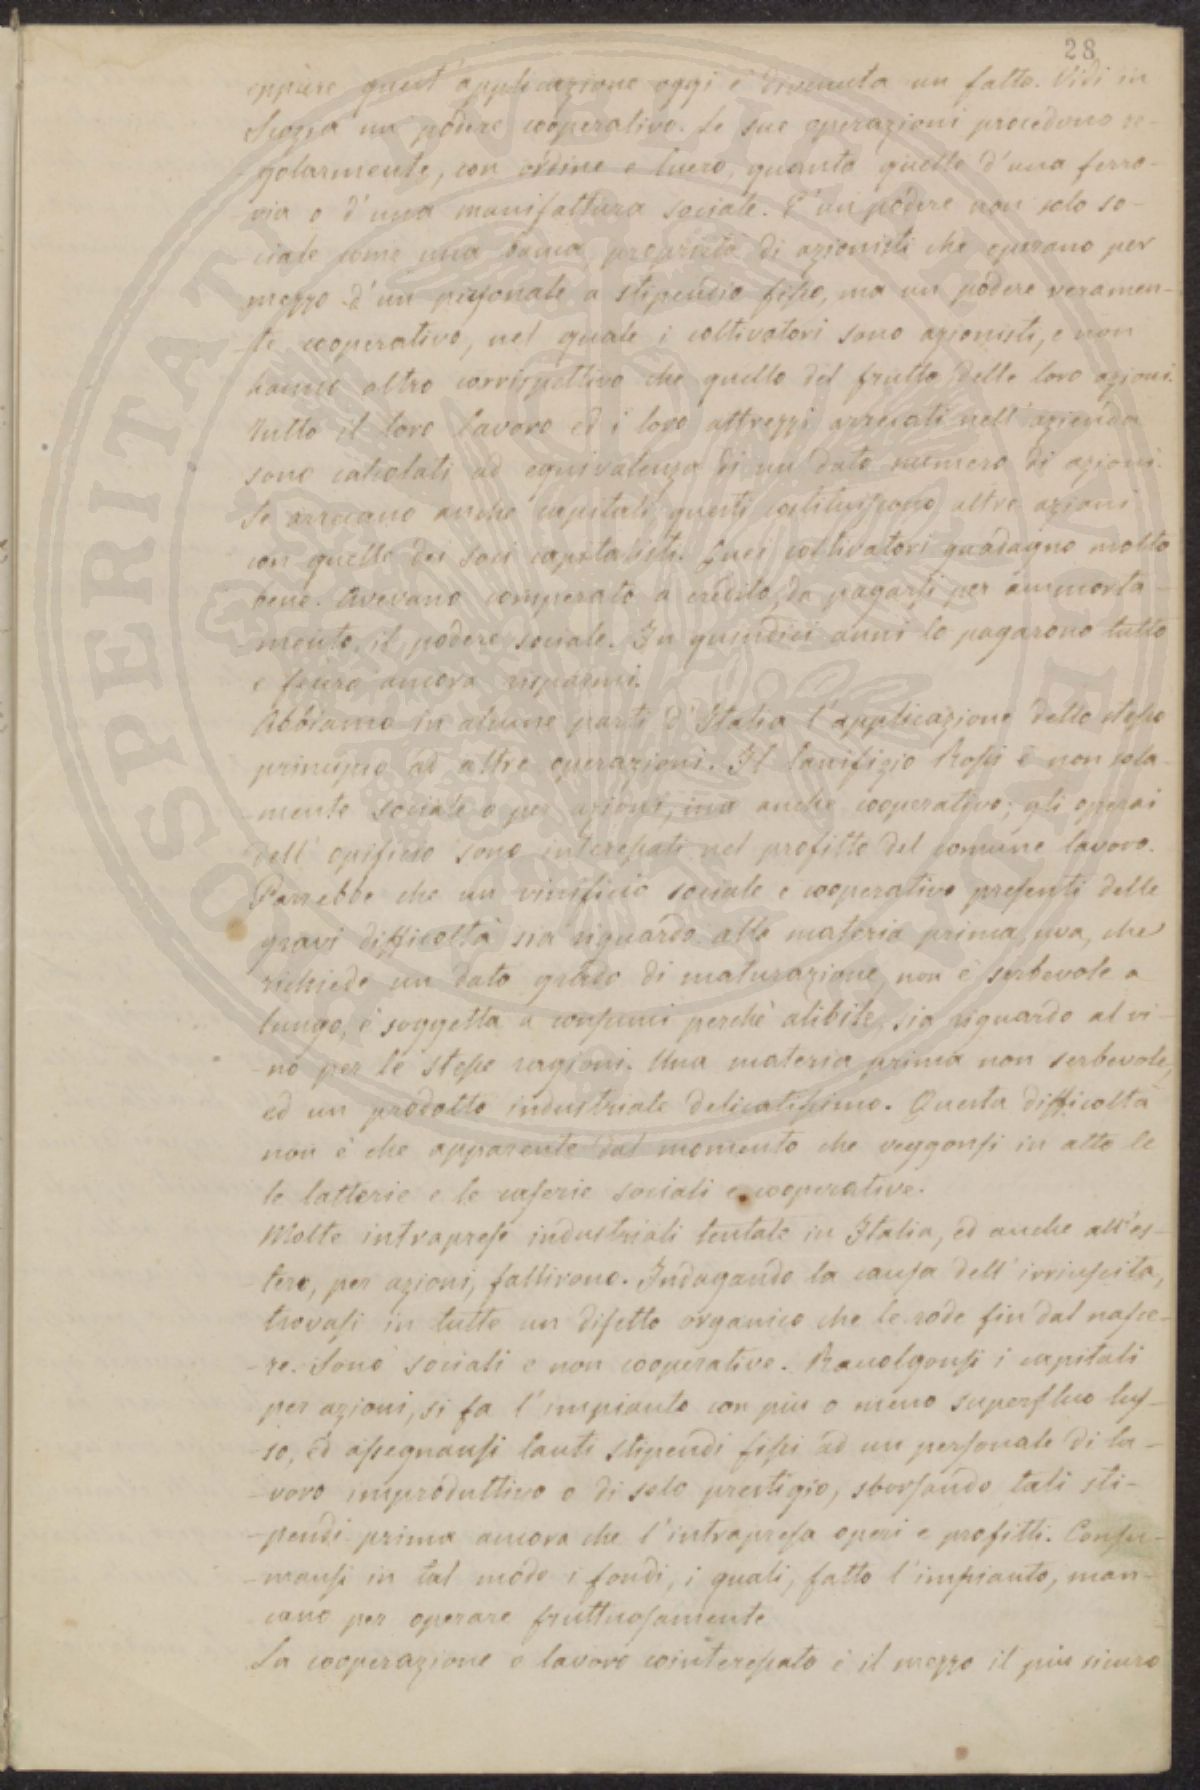 28
eppure quest'applicazione oggi è divenuta un fatto. Vidi in
Scozia un podere cooperativo. Le sue operazioni procedono re-
golarmente, con ordine e lucro, quanto quelle d'una ferro-
-via o d'una manifattura sociale. È un podere non solo so-
-ciale come una banca proprietà di azionisti che operano per
mezzo d'un personale a stipendio fisso, ma un podere veramen-
-te cooperativo, nel quale i coltivatori sono azionisti, e non
hanno altro corrispettivo che quello del frutto delle loro azioni.
Tutto il loro lavoro ed i loro attrezzi arrecati nell'azienda
sono calcolati ad equivalenza di un dato numero di azioni.
Se arrecano anche capitali questi costituiscono altre azioni
con quelle dei soci capitalisti. Quei coltivatori guadagno molto
bene. Avevano comperato a credito, da pagarsi per ammorta-
-mento, il podere sociale. In quindici anni lo pagarono tutto
e fecero ancora risparmi.
Abbiamo in alcune parti d'Italia l'applicazione dello stesso
principio ad altre operazioni. Il lanifizio Rossi è non sola-
-mente sociale o per azioni, ma anche cooperativo; gli operai
dell'opificio sono interessati nel profitto del comune lavoro.
Parrebbe che un vinificio sociale e cooperativo presenti delle
gravi difficoltà sia riguardo alla materia prima, uva, che
richiede un dato grado di maturazione, non è serbevole a
lungo, è soggetta a consumi perchè alibile, sia riguardo al vi-
-no per le stesse ragioni. Una materia prima non serbevole,
ed un prodotto industriale delicatissimo. Questa difficoltà
non è che apparente dal momento che veggonsi in atto le
le latterie e le caserie sociali e cooperative.
Molte intraprese industriali tentate in Italia, ed anche all'es-
-tero, per azioni, fallirono. Indagando la causa dell'irriuscita,
trovasi in tutte un difetto organico che le rode fin dal nasce-
-re. Sono sociali e non cooperative. Raccolgonsi i capitali
per azioni, si fa l'impianto con più o meno superfluo lus-
-so, ed assegnansi lauti stipendi fissi ad un personale di la-
-voro improduttivo o di solo prestigio, sborsando tali sti-
-pendi prima ancora che l'intrapresa operi e profitti. Consu-
-mansi in tal modo i fondi, i quali, fatto l'impianto, man-
-cano per operare fruttuosamente
La cooperazione o lavoro cointeressato è il mezzo il più sicuro
PROSPERITATI PUBLICAE AUGENDAE